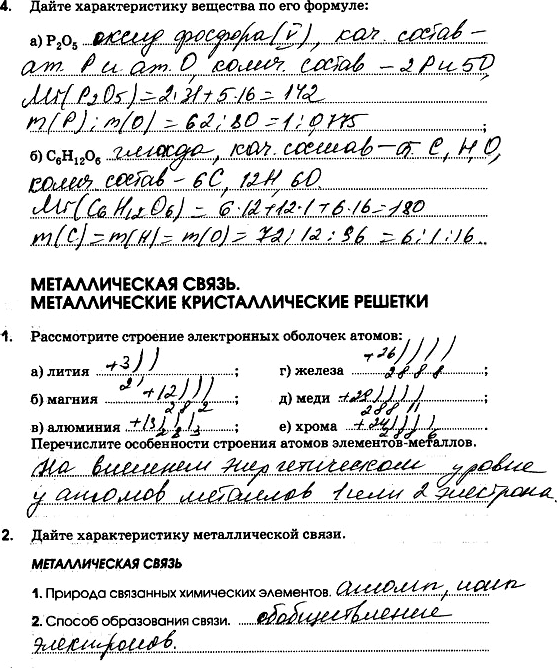 4. Дайте характеристику вещества по его формуле:
а) P₂O₅ оксид фосфора (V), кач. состав –
ат. P и ат. O, колич. состав – 2P и 5O,
Mr(P₂O₅) = 2·31 + 5·16 = 142
m(P) : m(O) = 62 : 80 = 1 : 0,775 ;
б) C₆H₁₂O₆ глюкоза, кач. состав – ат. C, H, O,
колич. состав – 6C, 12H, 6O.
Mr(C₆H₁₂O₆) = 6·12 + 12·1 + 6·16 = 180
m(C) = m(H) = m(O) = 72 : 12 : 96 = 6 : 1 : 16
МЕТАЛЛИЧЕСКАЯ СВЯЗЬ.
МЕТАЛЛИЧЕСКИЕ КРИСТАЛЛИЧЕСКИЕ РЕШЕТКИ
1. Рассмотрите строение электронных оболочек атомов:
а) лития +3)) 2 1 ; г) железа +26)))) 2 8 8 8 ;
б) магния +12))) 2 8 2 ; д) меди +29)))) 2 8 8 11 ;
в) алюминия +13))) 2 8 3 ; е) хрома +24)))) 2 8 8 6 .
Перечислите особенности строения атомов элементов-металлов.
На внешнем энергетическом уровне
у атомов металлов 1 или 2 электрона.
2. Дайте характеристику металлической связи.
МЕТАЛЛИЧЕСКАЯ СВЯЗЬ
1. Природа связанных химических элементов. атомы, ионы
2. Способ образования связи. обобществление
электронов.